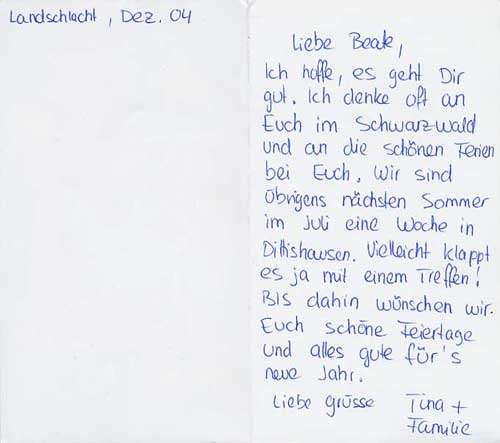 Landschlacht, Dez. 04
Liebe Beate,
Ich hoffe, es geht Dir
gut. Ich denke oft an
Euch im Schwarzwald
und an die schönen Ferien
bei Euch. Wir sind
übrigens nächsten Sommer
im Juli eine Woche in
Dittishausen. Vielleicht klappt
es ja mit einem Treffen!
Bis dahin wünschen wir
Euch schöne Feiertage
und alles gute für's
neue Jahr.
Liebe grüsse Tina +
Familie